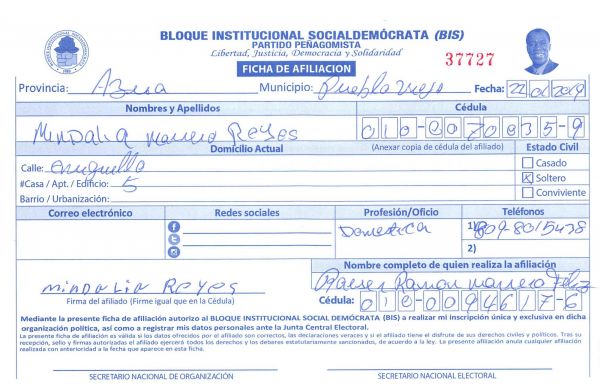 BLOQUE INSTITUCIONAL SOCIALDEMÓCRATA (BIS)
PARTIDO PEÑAGOMISTA
Libertad, Justicia, Democracia y Solidaridad
37727
FICHA DE AFILIACION
Provincia: Azua Municipio: Pueblo Viejo Fecha:
Nombres y Apellidos Cédula
Mindalia Marrero Reyes 010-0070835-9
Domicilio Actual (Anexar copia de cédula del afiliado) Estado Civil
Calle: enriquillo Casado
#Casa / Apt. / Edificio: 5 X Soltero
Barrio / Urbanización: Conviviente
Correo electrónico Redes sociales Profesión/Oficio Teléfonos
Domestica 1) 809-8015438
2)
Nombre completo de quien realiza la afiliación
MINDALIA REYES Ramon Marrero Feliz
Firma del afiliado (Firme igual que en la Cédula) Cédula: 010-0094617-6
Mediante la presente ficha de afiliación autorizo al BLOQUE INSTITUCIONAL SOCIAL DEMÓCRATA (BIS) a realizar mi inscripción única y exclusiva en dicha
organización política, así como a registrar mis datos personales ante la Junta Central Electoral.
La presente ficha de afiliación es válida si las datos ofrecidos por el afiliado son correctos, las declaraciones veraces y si el afiliado tiene el disfrute de sus derechos civiles y políticos. Tras su
recepción, sello y firmas autorizadas el afiliado ejercerá todos los derechos y los deberes estatutariamente sancionados, de acuerdo a la ley. La presente afiliación anula cualquier afiliación
realizada con anterioridad a la fecha que aparece en esta ficha.
SECRETARIO NACIONAL DE ORGANIZACIÓN SECRETARIO NACIONAL ELECTORAL